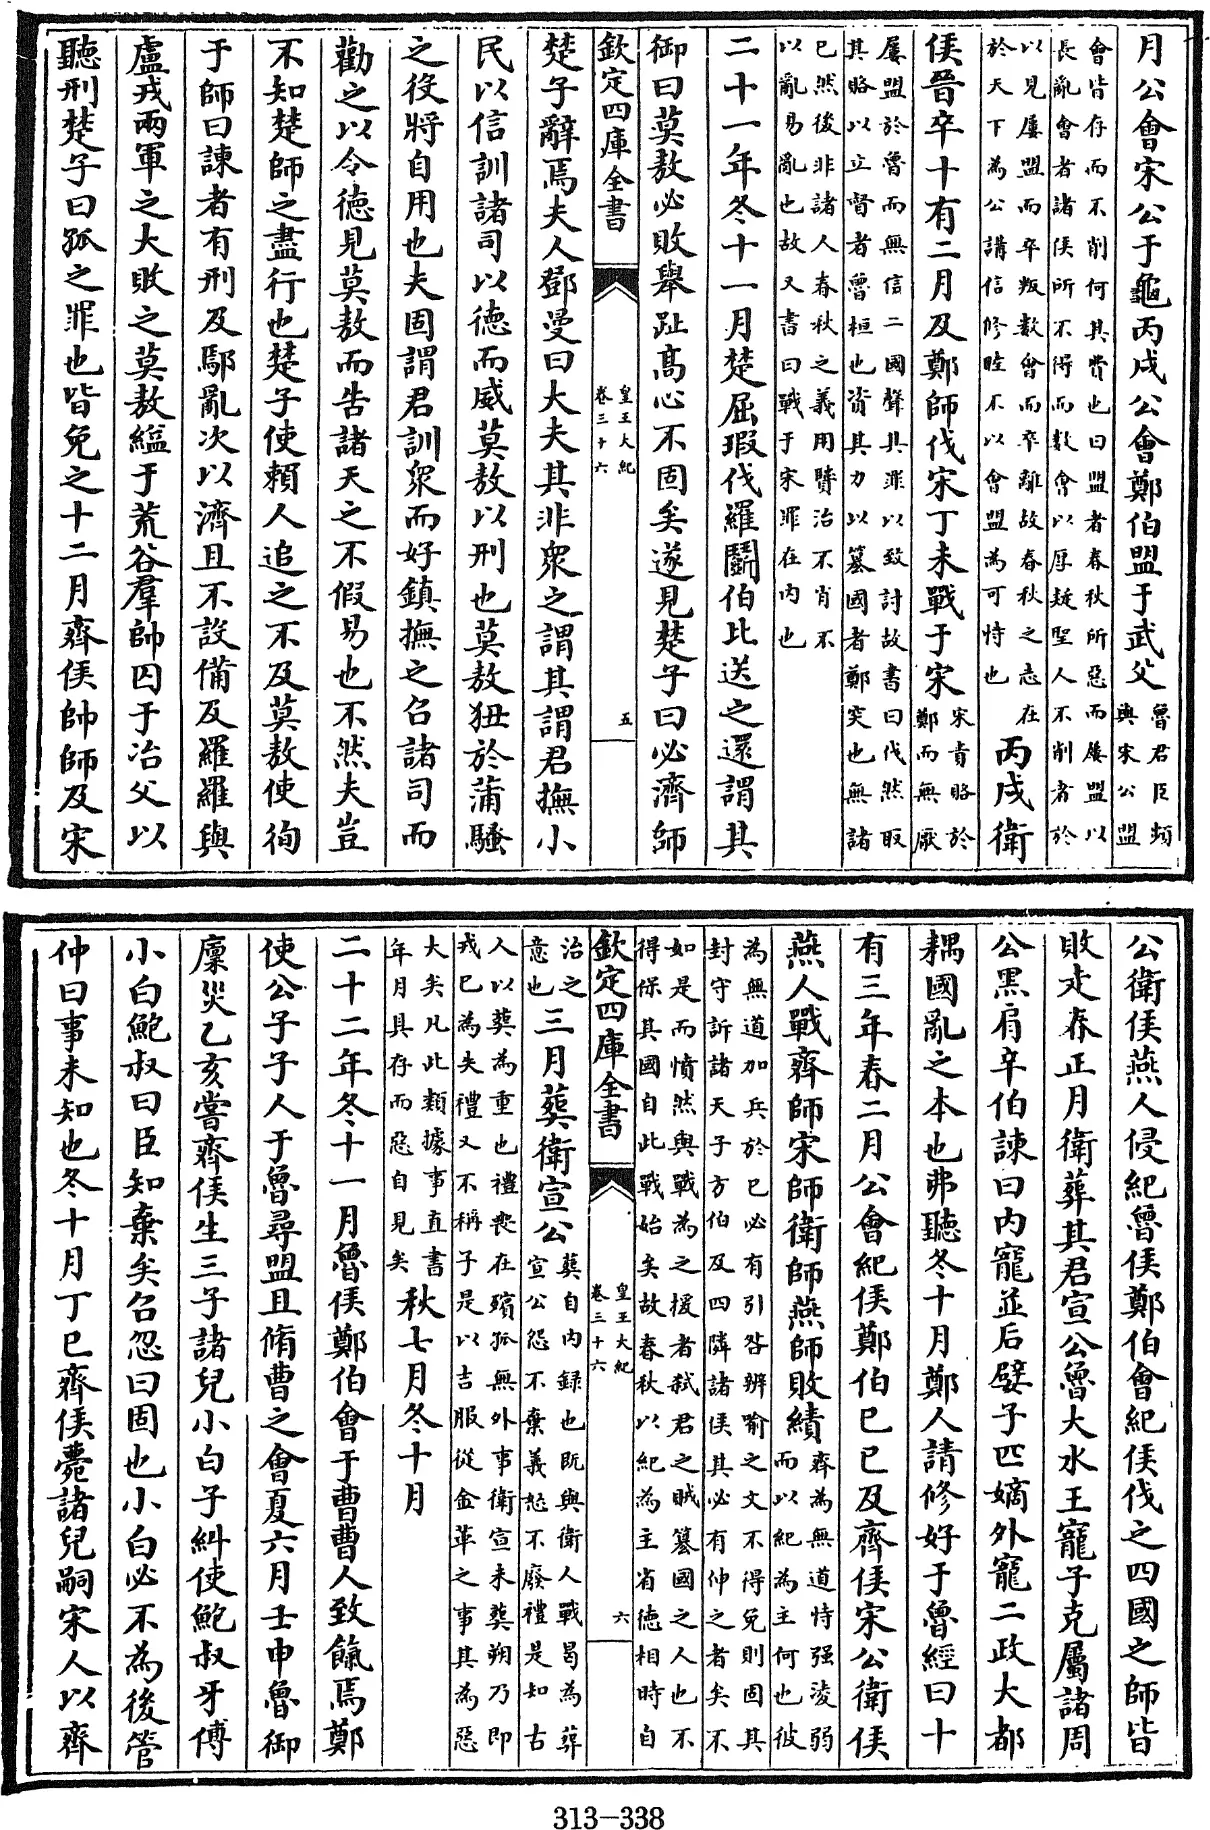 月公會宋公于龜丙戌公會鄭伯盟于武父魯君臣頻與宋公盟
會皆存而不削何其費也曰盟者春秋所惡而屢盟以
長亂會者諸侯所不得而數會以厚疑聖人不削者於
以見屢盟而卒叛數會而卒離故春秋之志在
於天下為公講信修睦不以會盟為可恃也丙戌衛
侯晉卒十有二月及鄭師伐宋丁未戰于宋宋責賂於鄭而無厭
屢盟於魯而無信二國聲其罪以致討故書曰伐然取
其賂以立督者魯桓也資其力以篡國者鄭突也無諸
已然後非諸人春秋之義用賢治不肖不
以亂易亂也故又書曰戰于宋罪在内也
二十一年冬十一月楚屈瑕伐羅鬭伯比送之還謂其
御曰莫敖必敗舉趾髙心不固矣遂見楚子曰必濟師
欽定四庫全書
皇王大紀
卷三十六
五
楚子辭焉夫人鄧曼曰大夫其非衆之謂其謂君撫小
民以信訓諸司以德而威莫敖以刑也莫敖狃於蒲騷
之役將自用也夫固謂君訓衆而好鎮撫之召諸司而
勸之以令德見莫敖而告諸天之不假易也不然夫豈
不知楚師之盡行也楚子使賴人追之不及莫敖使徇
于師曰諫者有刑及鄢亂次以濟且不設備及羅羅與
盧戎兩軍之大敗之莫敖縊于荒谷羣帥囚于冶父以
聽刑楚子曰孤之罪也皆免之十二月齊侯帥師及宋
公衛侯燕人侵紀魯侯鄭伯會紀侯伐之四國之師皆
敗走春正月衛葬其君宣公魯大水王寵子克屬諸周
公黒肩辛伯諫曰内寵並后嬖子匹嫡外寵二政大都
耦國亂之本也弗聽冬十月鄭人請修好于魯經曰十
有三年春二月公會紀侯鄭伯己巳及齊侯宋公衛侯
燕人戰齊師宋師衛師燕師敗績齊為無道恃强淩弱而以紀為主何也彼
為無道加兵於已必有引咎辨喻之文不得免則固其
封守訴諸天子方伯及四隣諸侯其必有伸之者矣不
如是而憤然與戰為之援者弑君之賊簒國之人也不
得保其國自此戰始矣故春秋以紀為主省德相時自
欽定四庫全書
皇王大紀
卷三十六
六
治之
意也三月葬衛宣公葬自内録也既與衛人戰曷為葬宣公怨不棄義怒不廢禮是知古
人以葬為重也禮喪在殯孤無外事衛宣未葬朔乃即
戎已為失禮又不稱子是以吉服從金革之事其為惡
大矣凡此類據事直書
年月具存而惡自見矣秋七月冬十月
二十二年冬十一月魯侯鄭伯會于曹曹人致餼焉鄭
使公子子人于魯尋盟且脩曹之會夏六月壬申魯御
廩災乙亥嘗齊侯生三子諸兒小白子糾使鮑叔牙傅
小白鮑叔曰臣知棄矣召忽曰固也小白必不為後管
仲曰事未知也冬十月丁巳齊侯薨諸兒嗣宋人以齊
313-338